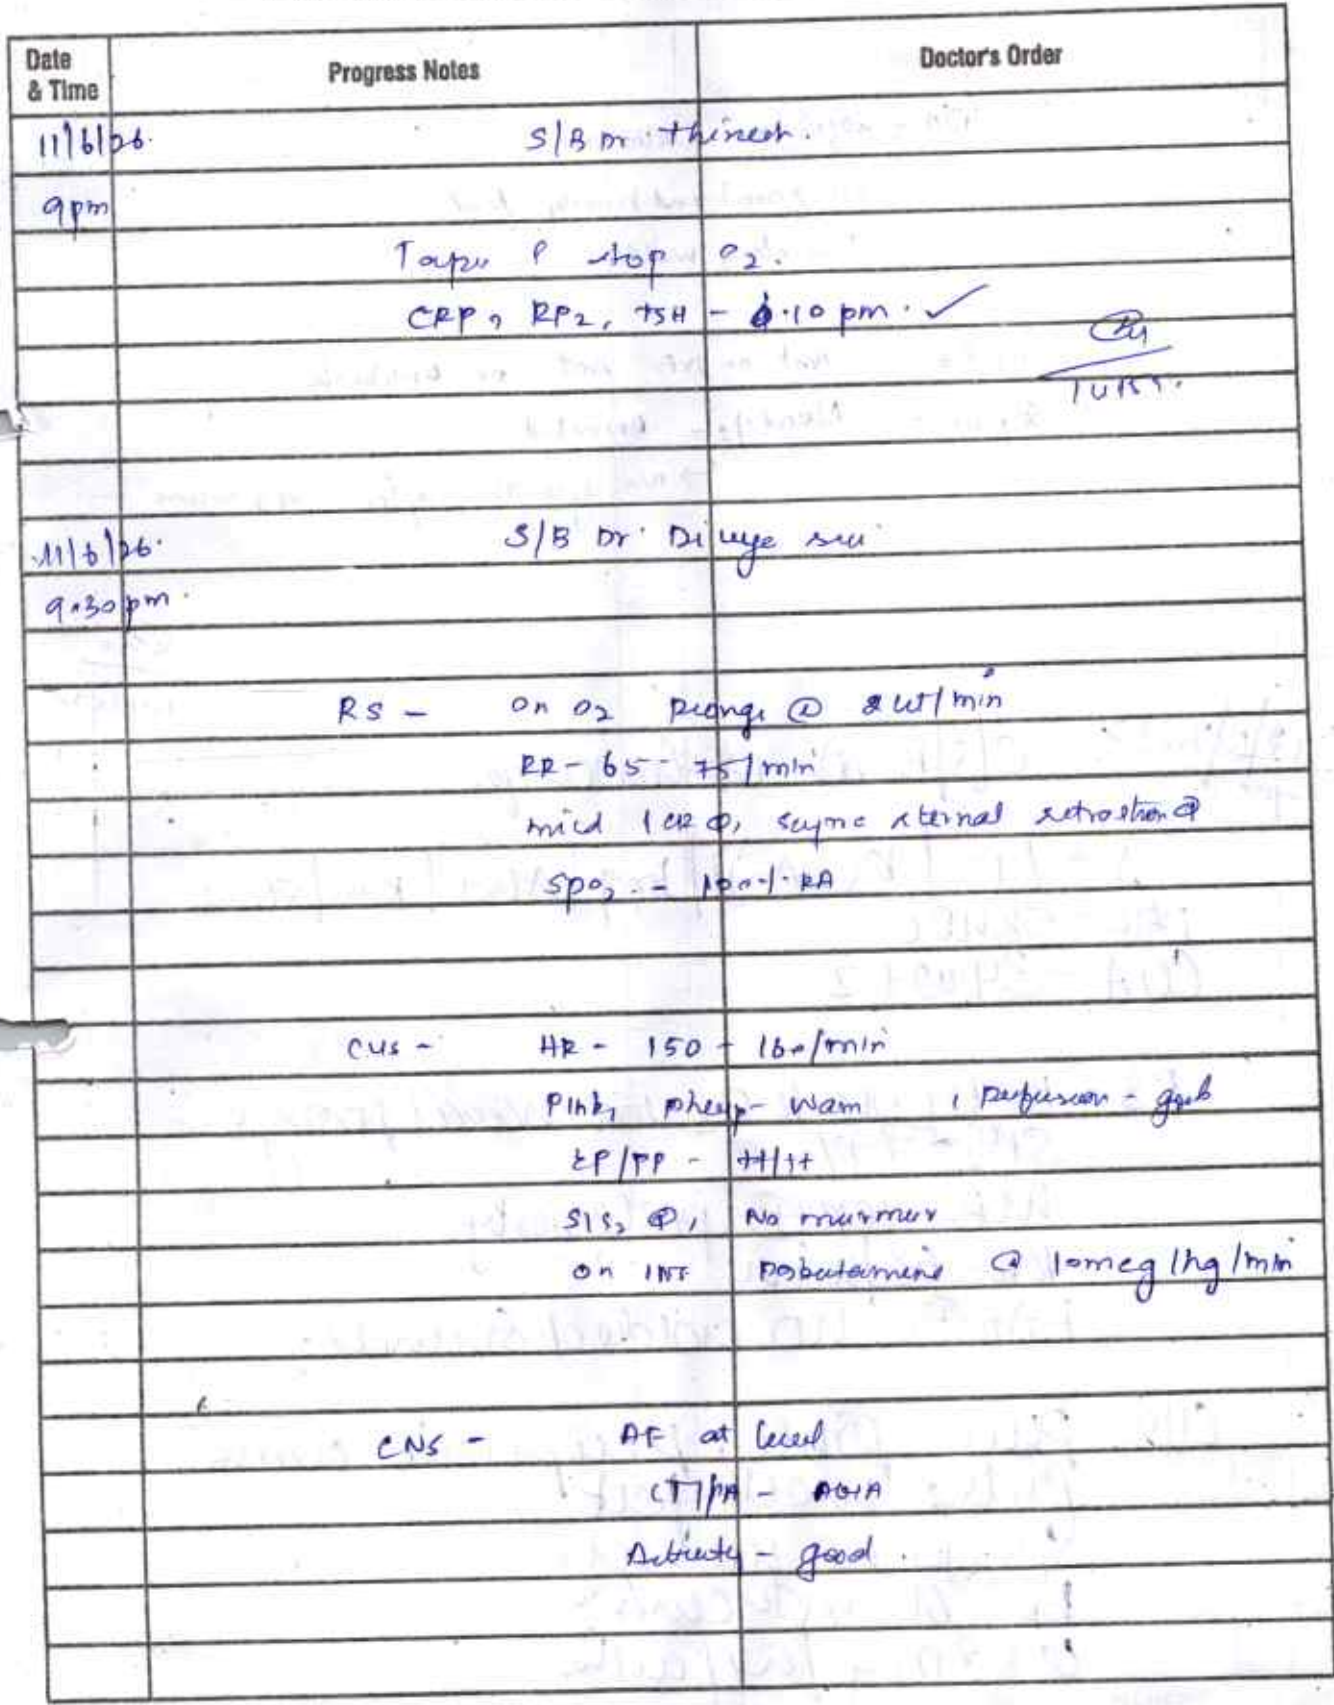 Date & Time Progress Notes Doctor's Order
11/6/26. S/B Dr. thinesh.
9pm
Taper & stop O2.
CRP, RP2, TSH - 6.10 pm. ✓
11/6/26. S/B Dr. Di
9.30pm.
RS - on O2 prongs @ 2 lit/min
RR - 65 - 75/min
mild ICR ⊕, sternal retraction ⊕
SpO2 - 100% RA
CVS - HR - 150 - 160/min
Pink, pheup - warm, perfusion - good
CP/PP - ++/++
S1S2 ⊕, No murmur
on INF Dobutamine @ 10mcg/kg/min
CNS - AF at level
CTP/A - AGA
Activity - good.